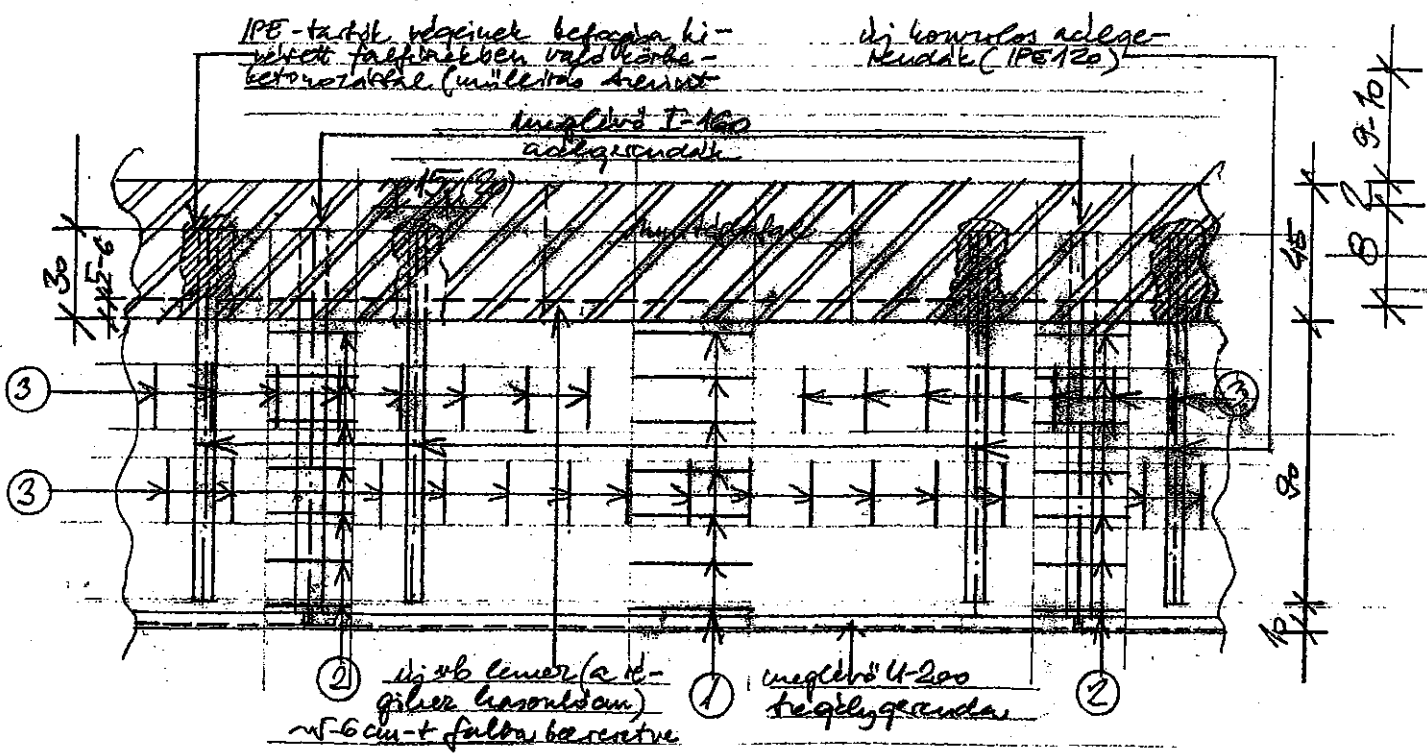 IPE-tartók végeinek befogása ki-
vésett falfészkekben való körbe-
betonozással (műleírás szerint
új konzolos acélge-
rendák (IPE 120)
meglévő I-160
acélgerendák
15 (20)
30
5-6
9-10
2
8
45
90
10
3
3
3
2
1
2
új vb lemez (a ré-
gihez hasonlóan)
~5-6 cm-t falba bevésve
meglévő U-200
szegélygerenda